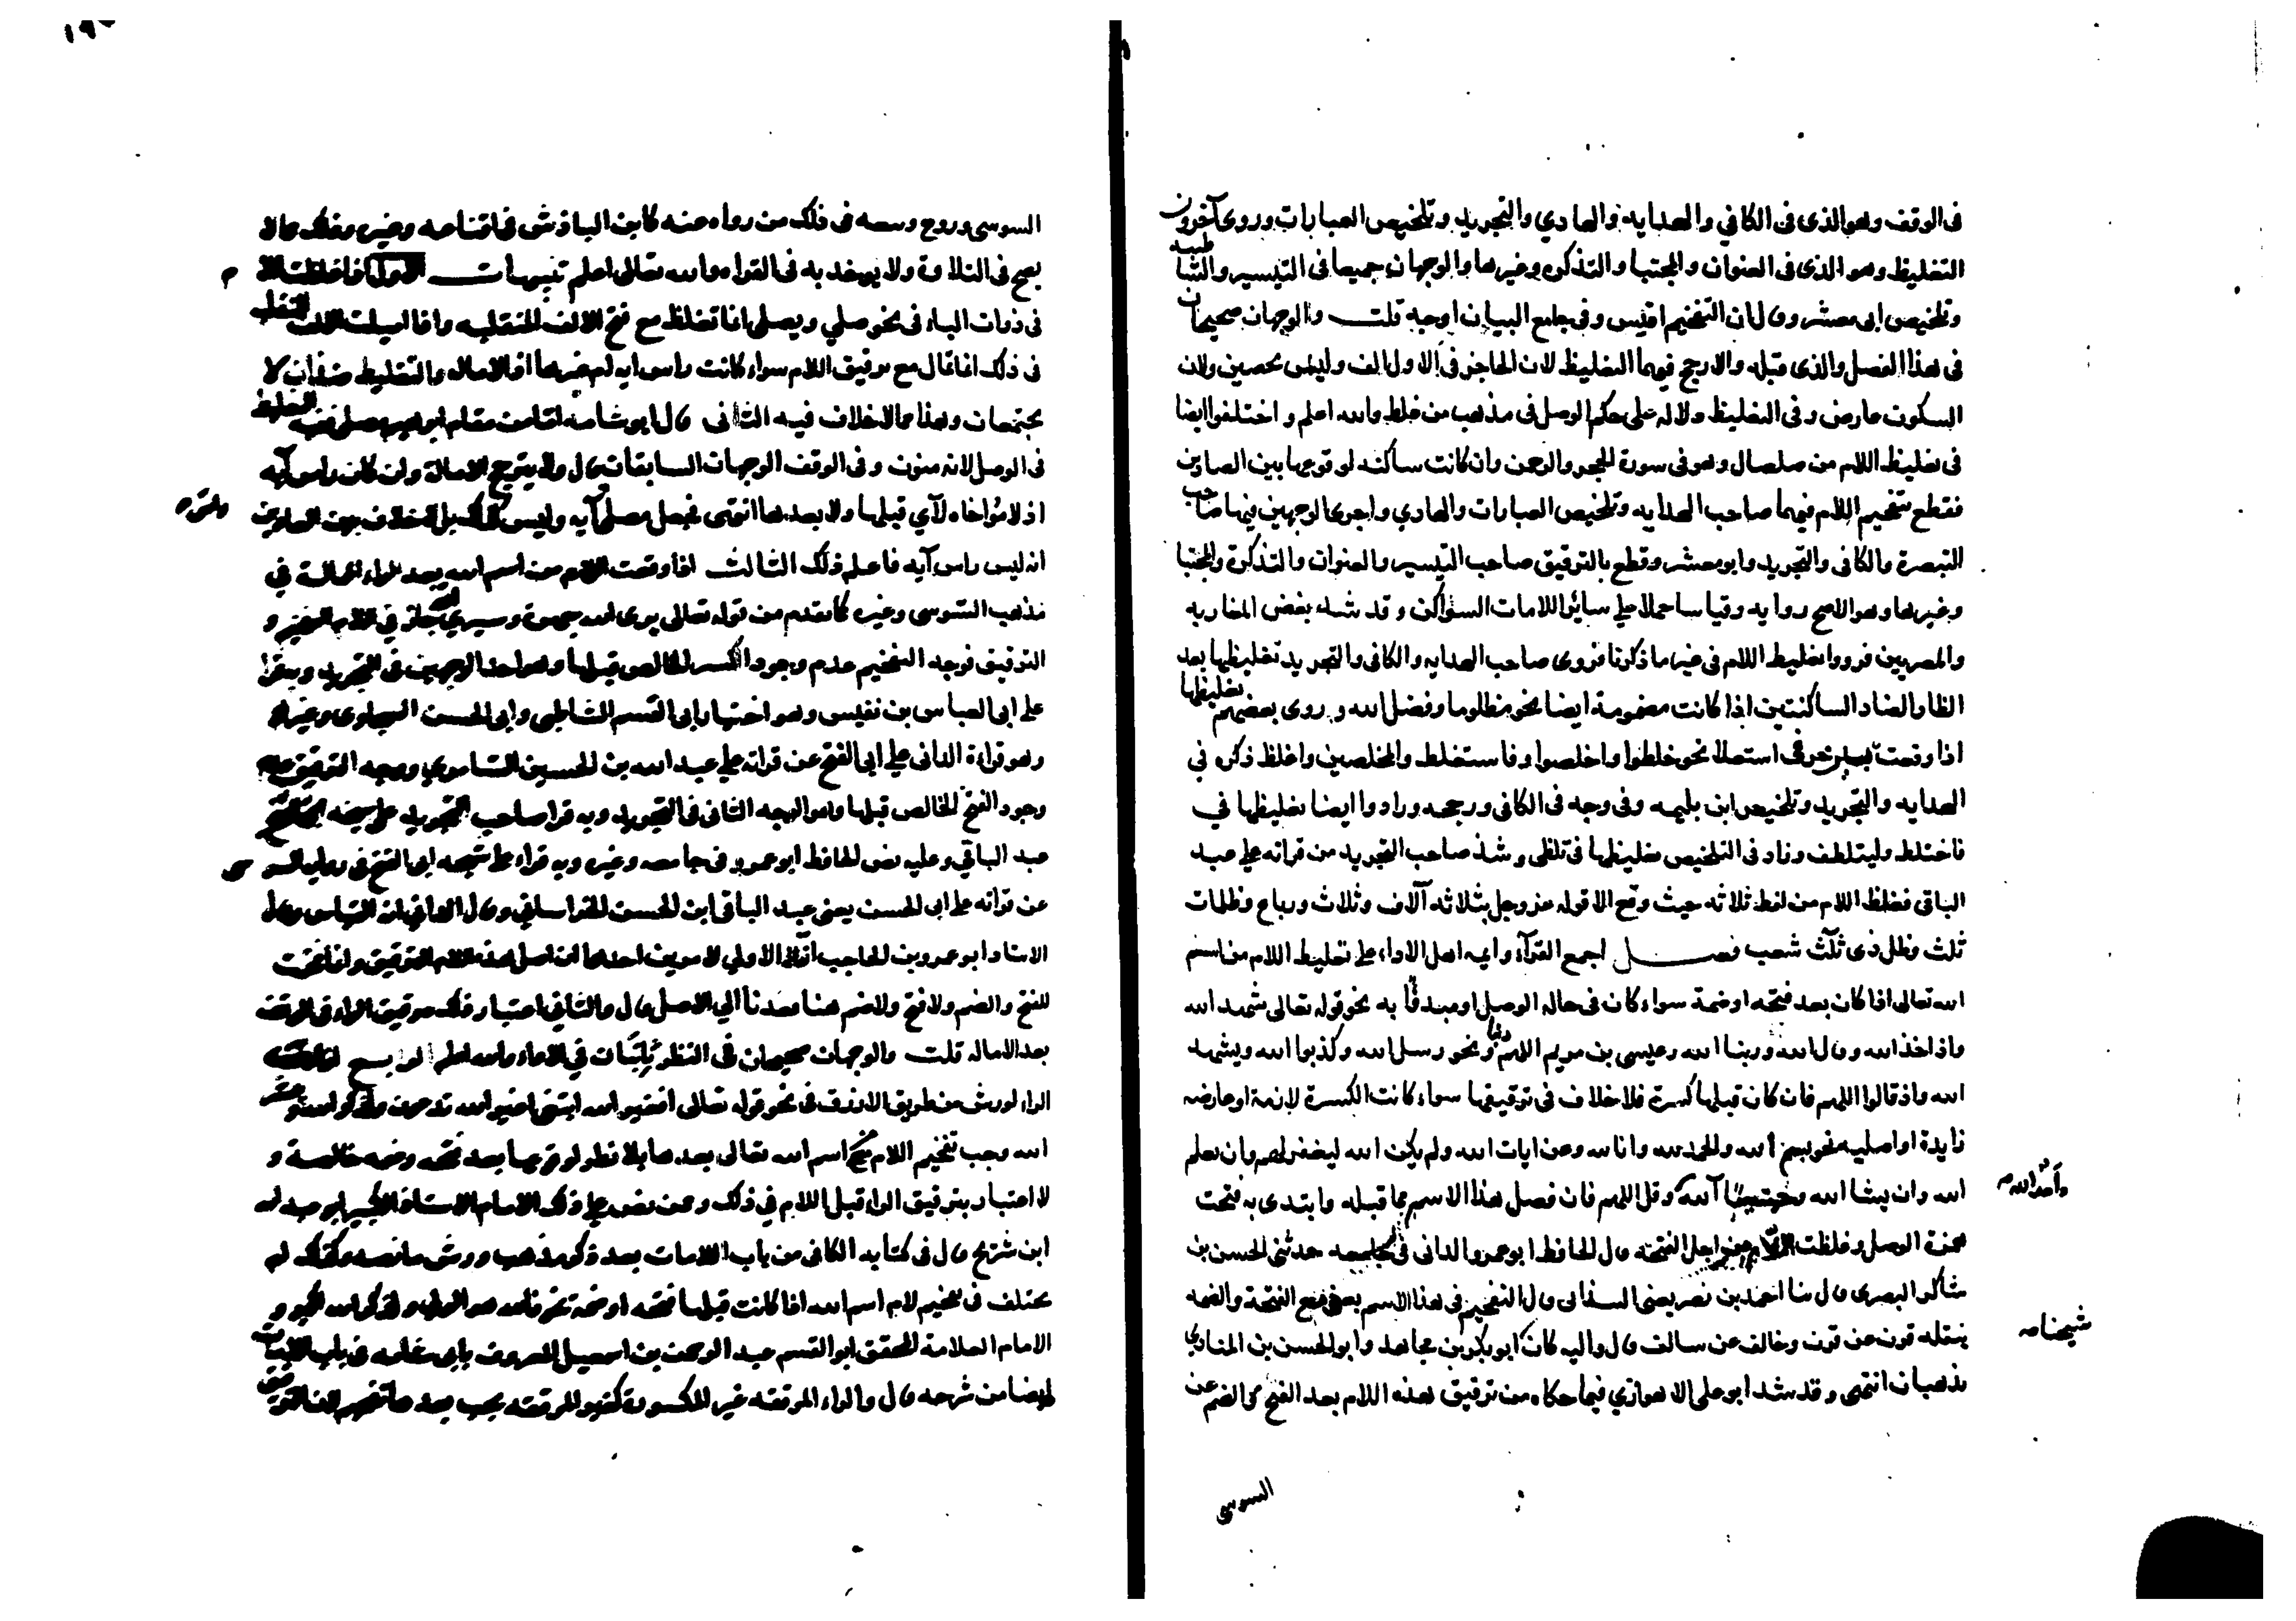 فى الوقف وهو الذى فى الكافي والهدايه والهادي والتجريد وتلخيص العبارات وروى آخرون
التغليظ وهو الذى فى العنوان والمجتبا والتذكره وغيرها والوجهان جميعا فى التيسير والشاطبيه
وتلخيص ابى معشر وقال ان التفخيم اقيس وفى جامع البيان اوجه قلت والوجهان صحيحان
فى هذا الفصل والذى قبله والارجح فيهما التغليظ لان الحاجز فى الاول الف وليس بحصين ولان
السكون عارض وفى التغليظ دلاله على حكم الوصل فى مذهب من غلظ والله اعلم واختلفوا ايضا
فى تغليظ اللام من صلصال وهو فى سورة الحجر والرحمن وان كانت ساكنه لوقوعها بين الصادين
فقطع بتفخيم اللام فيهما صاحب الهدايه وتلخيص العبارات والهادي واجرى الوجهين فيها صاحب
التبصرة والكافى والتجريد وابو معشر وقطع بالترقيق صاحب التيسير والعنوان والتذكرة والمجتبا
وغيرها وهو الاصح روايه وقياسا حملا على سائر اللامات السواكن وقد شذ بعض المغاربه
والمصريين فرووا تغليظ اللام فى غير ما ذكرنا فروى صاحب الهدايه والكافى والتجريد تغليظها بعد
الظا والضاد الساكنتين اذا كانت مضمومة ايضا نحو مظلوما وفضل الله وروى بعضهم تغليظها
اذا وقعت بين حرفى استعلا نحو خلطوا واخلصوا وفاستغلظ والمخلصين واغلظ ذكره فى
الهدايه والتجريد وتلخيص ابن بليمه وفى وجه فى الكافى ورجحه وزادوا ايضا تغليظها في
فاختلط وليتلطف وزاد فى التلخيص تغليظها فى تلظى وشذ صاحب التجريد من قراته على عبد
الباقى فغلظ اللام من لفظ ثلاثه حيث وقع الا قوله عز وجل بثلاثه آلاف وثلاث ورباع وظلمات
ثلث وظل ذى ثلث شعب فصل اجمع القرآء وايمه اهل الاداء على تغليظ اللام من اسم
الله تعالى اذا كان بعد فتحه او ضمة سواء كان فى حاله الوصل او مبدوا به نحو قوله تعالى شهد الله
واذ اخذ الله وقال الله وربنا الله وعيسى بن مريم اللهم ربنا ونحو رسل الله وكذبوا الله ويشهد
الله واذ قالوا اللهم فان كان قبلها كسرة فلا خلاف فى ترقيقها سواء كانت الكسرة لازمة او عارضه
زايدة او اصليه نحو بسم الله والحمد لله وانا لله وعن ايات الله ولم يكن الله ليغفر لهم وان يعلم
الله وان يشا الله وحسيبا الله وقل اللهم فان فصل هذا الاسم مما قبله وابتدى به فتحت
وأحد الله م
همزة الوصل وغلظت اللام من اجل الفتحه قال الحافظ ابو عمرو الدانى فى جامعه حدثنى الحسن بن
شاكر البصرى قال ثنا احمد بن نصر يعنى الشذائى قال التفخيم فى هذا الاسم يعنى مع الفتحة والضمه
ينقله قرن عن قرن وخالف عن سالف قال واليه كان ابو بكر بن مجاهد وابو الحسن بن المنادى
شيخنا مه
يذهبان انتهى وقد شذ ابو على الاهوازي فيما حكاه من ترقيق هذه اللام بعد الفتح والضم عن
السوسى
السوسى وروح وتبعه فى ذلك من رواه عنه كابن الباذش فى اقناعه وغيره وذلك مما لا
يصح فى التلاوة ولا يوخذ به فى القراءه والله تعالى اعلم تنبيهات الاول اذا غلظت اللام
فى ذوات الياء فى نحو صلى ويصلى انما تغلظ مع فتح الالف المنقلبه واذا اميلت الالف المنقلبه
فى ذلك انما تمال مع ترقيق اللام سواء كانت راس ايه ام غيرها اذ الاماله والتغليظ ضدان لا
يجتمعان وهذا مما لا خلاف فيه الثانى قال ابو شامه اما من مقام ابراهيم مصلى ففيه التغليظ
فى الوصل لانه منون وفى الوقف الوجهان السابقان قال ولا يترجح الامالة وان كان راس آيه
اذ لا مؤاخاه لآي قبلها ولا بعدها انتهى فجعل مصلى آيه وليس كذلك بل لا خلاف بين العادين
انه ليس راس آيه فاعلم ذلك الثالث اذا وقعت اللام من اسم الله بعد الراء الممالة في
مذهب السوسى وغيره كما تقدم من قوله تعالى يرى الله جهرة وسيرى الله جاز فى اللام التفخيم و
الترقيق فوجه التفخيم عدم وجود الكسر الخالص قبلها وهو احد الوجهين فى التجريد وبه قرا
على ابى العباس بن نفيس وهو اختيار ابى القسم الشاطبى وابى الحسن السخاوى وغيرهم
وهو قراءة الدانى على ابى الفتح عن قراته على عبد الله بن الحسين السامرى ووجه الترقيق عدم
وجود الفتح الخالص قبلها وهو الوجه الثانى فى التجريد وبه قرا صاحب التجريد على شيخه
عبد الباقي وعليه نص الحافظ ابو عمرو فى جامعه وغيره وبه قراء على شيخه ابى الفتح فى روايه السوسى
عن قراته على ابى الحسن يعنى عبد الباقى ابن الحسن الخراسانى وقال الدانى انه القياس وقال
الاستاد ابو عمرو بن الحاجب انه الاولي لامرين احدهما ان اصل هذه اللام الترقيق وانما فخمت
للفتح والضم ولا فتح ولا ضم هنا فعدنا الي الاصل قال والثاني اعتبار ذلك بترقيق الراء فى الوقف
بعد الاماله قلت والوجهان صحيحان فى النظر ثابتان في الاداء والله اعلم الرابع اذا رققت
الراء لورش من طريق الازرق فى نحو قوله تعالى افغير الله ابتغى اغير الله تدعون ولذكر الله
الله وجب تفخيم اللام من اسم الله تعالى بعدها بلا نظر لوقوعها بعد فتحه وضمه خالصة و
لا اعتبار بترقيق الراء قبل اللام في ذلك وممن نص على ذلك الامام الاستاذ الكبير ابو عبد الله
ابن شريح قال فى كتابه الكافى من باب اللامات بعد ذكر مذهب ورش ما نصه وكذلك لم
يختلف فى تفخيم لام اسم الله اذا كانت قبلها فتحه او ضمة نحو فالله هو الولى ولذكر الله اكبر و
الامام العلامة المحقق ابو القسم عبد الرحمن بن اسمعيل المعروف بابى شامه فى باب اللامات
ايضا من شرحه قال والراء المرققه غير المكسورة كغير المرققه يجب بعدها التفخيم لان الترقيق